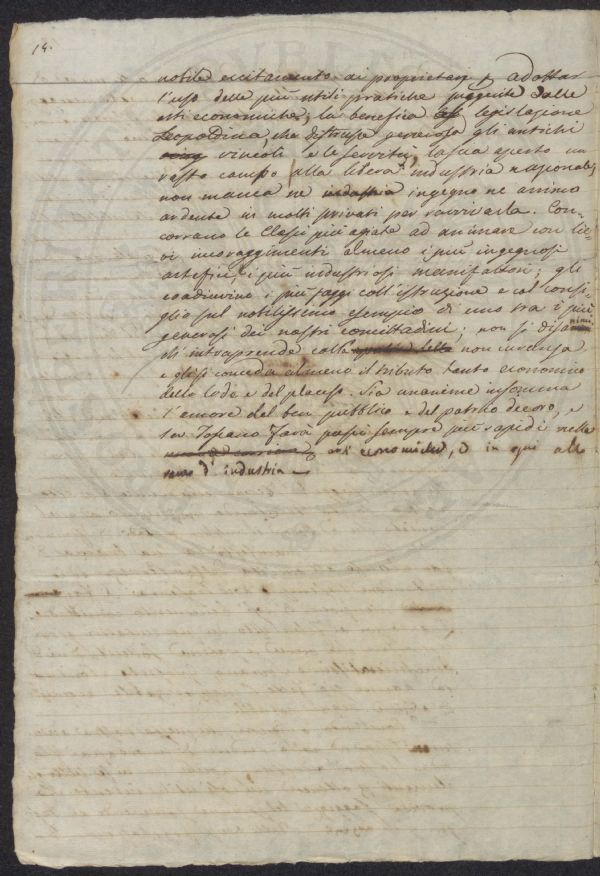 14.
nobile eccitamento ai proprietarj ad adottar
l'uso delle più utili pratiche suggerite dalle
arti economiche; la benefica legislazione
Leopoldina, che distrusse gli antichi
vincoli e le servitù, lascia aperto un
vasto campo alla libera industria nazionale;
non manca nè industria ingegno nè animo
ardente in molti privati per ravvivarla. Con-
corrano le Classi più agiate ad animare con lie-
vi incoraggimenti almeno i più ingegnosi
artefici, i più industriosi manifattori; gli
coadiuvino i più saggi coll'istruzione e col consi-
glio sul nobilissimo esempio di uno tra i più
generosi dei nostri concittadini; non si disanimi
chi intraprende colla non curanza
e gli si conceda almeno il tributo tanto economico
della lode e del plauso. Sia unanime insomma
l'amore del ben pubblico e del patrio decoro, e
la Toscana farà passi sempre più rapidi nelle
arti economiche, e in ogni altro
ramo d'industria